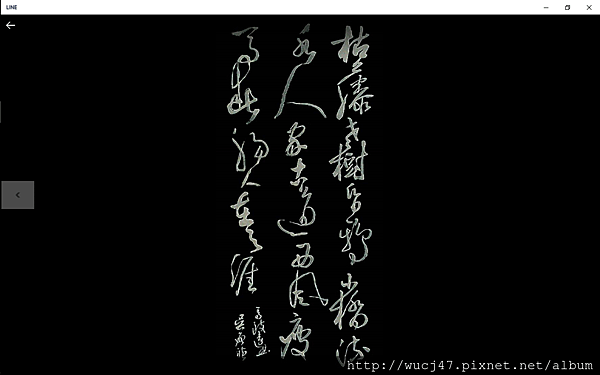 LINE
枯藤老樹昏鴉小橋流
水人家古道西風瘦
馬斷腸人在天涯
馬致遠
http://wucj47.pixnet.net/album